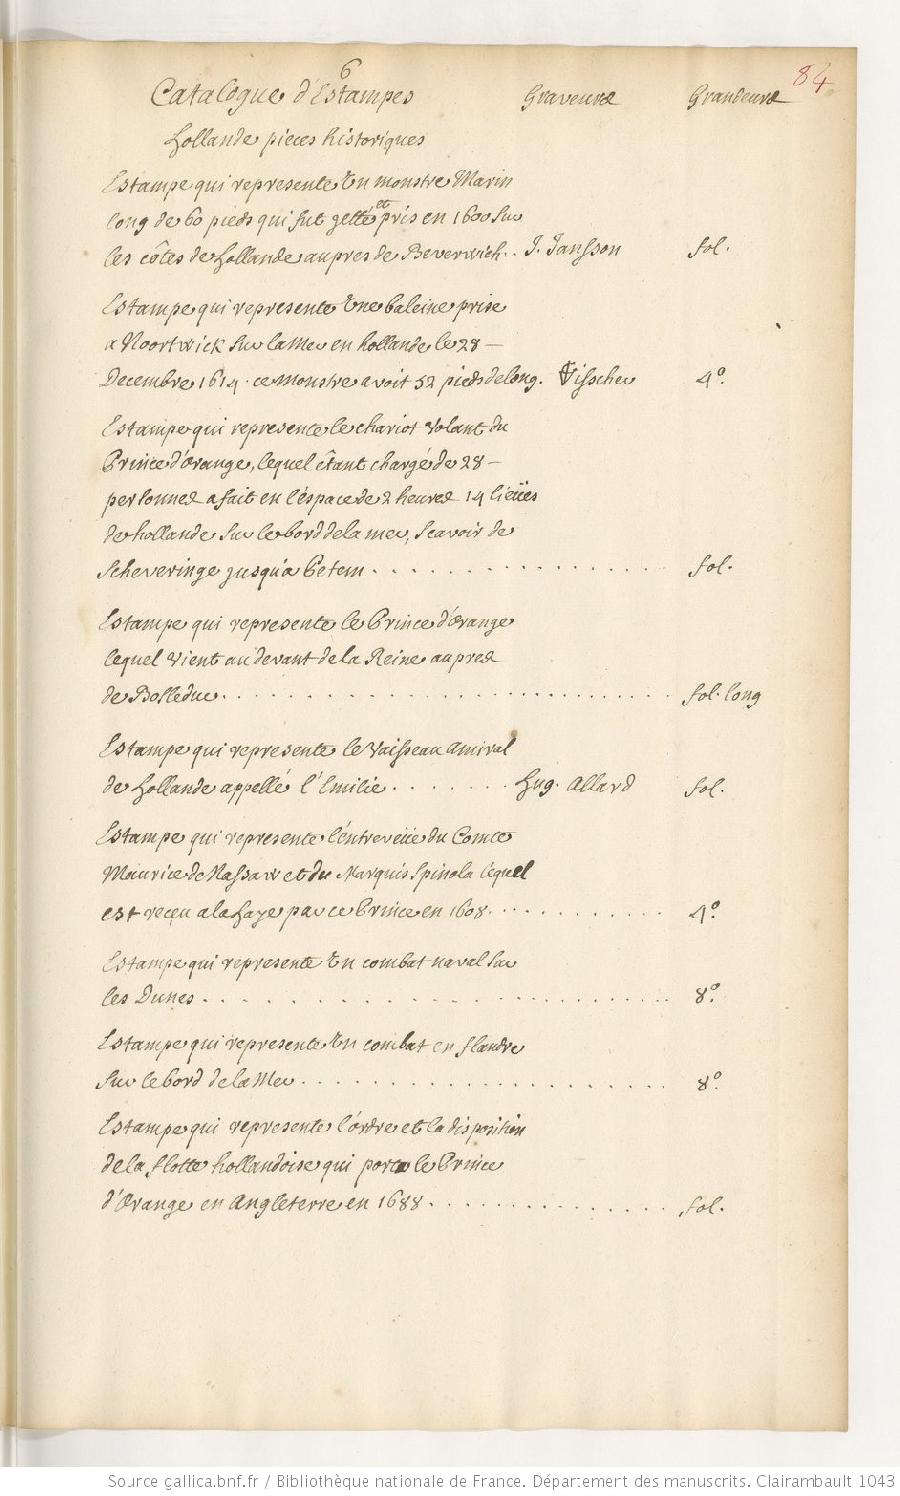 84
6
Catalogue d'Estampes Graveurs Grandeurs
Hollande pieces historiques
Estampe qui represente Un monstre Marin
long de 60 pieds qui fut jetté et pris en 1600 sur
les côtes de Hollande aupres de Beverwich.. J. Jansson fol.
Estampe qui represente Une baleine prise
a Noortwick sur la Mer en hollande le 28
Decembre 1614. ce monstre avoit 52 pieds de long. Visscher 4º.
Estampe qui represente le chariot Volant du
Prince d'Orange, lequel êtant chargé de 28
personnes a fait en l'éspace de 2 heures 14 lieües
de hollande sur le bord de la mer, Scavoir de
Scheveringe jusqu'a Petem . . . . fol.
Estampe qui represente le Prince d'Orange
lequel Vient au devant de la Reine aupres
de Bolleduc . . . . fol. long
Estampe qui represente le Vaisseau Amiral
de Hollande appellé l'Emilie . . . . Hug. Allard fol.
Estampe qui represente l'éntreveüe du Comte
Maurice de Nassau et du Marquis Spinola lequel
est receu a la Haye par ce Prince en 1608 . . . . 4º.
Estampe qui represente Un combat naval sur
les Dunes . . . . 8º.
Estampe qui represente Un combat en flandre
sur le bord de la Mer . . . . 8º.
Estampe qui represente l'órdre et la disposition
de la flotte hollandoise qui porta le Prince
d'Orange en Angleterre en 1688 . . . . fol.
Source gallica.bnf.fr / Bibliothèque nationale de France. Département des manuscrits. Clairambault 1043